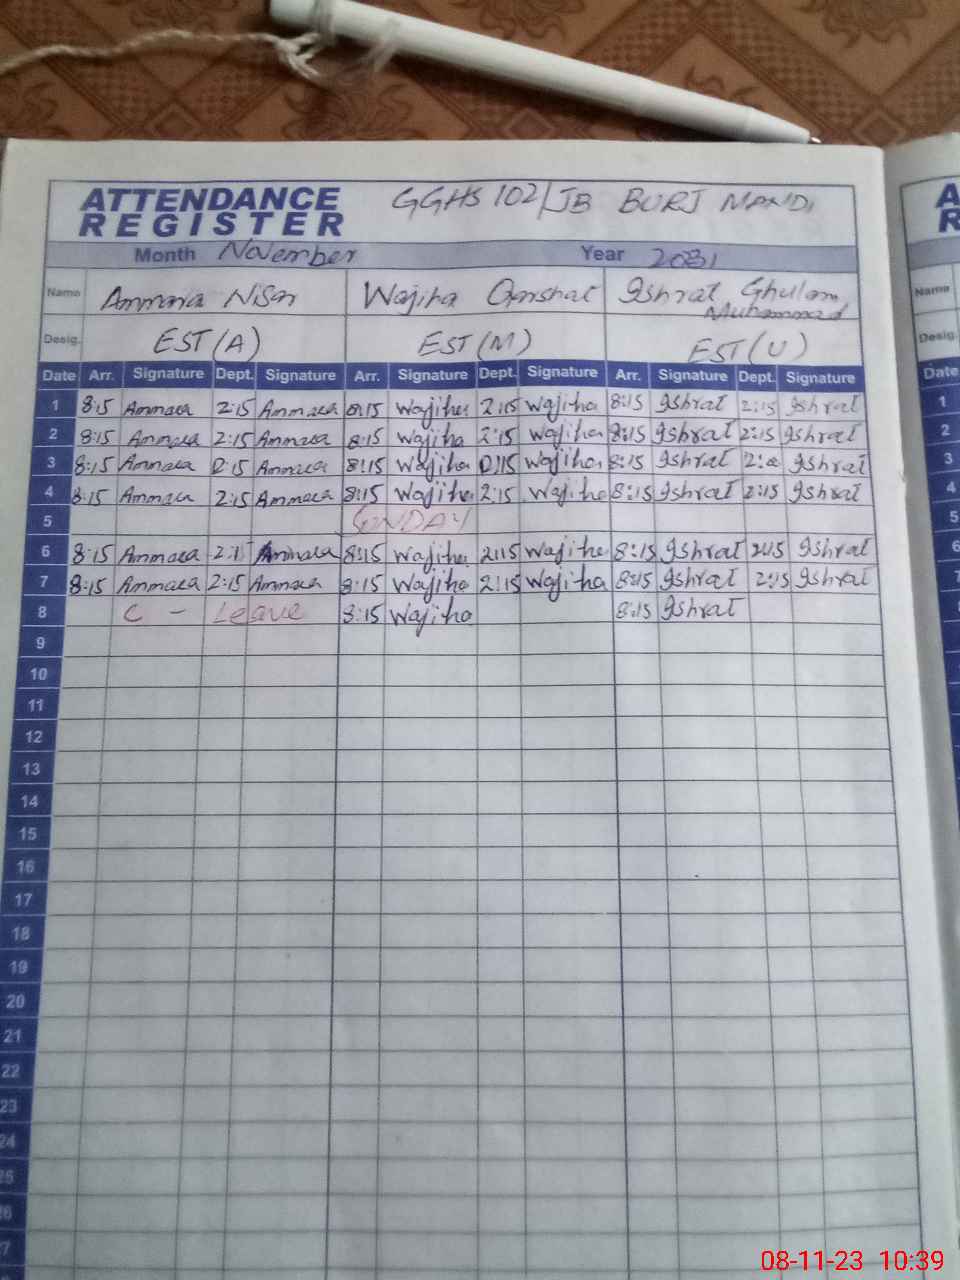 ATTENDANCE REGISTER GGHS 102/JB BURJ MANDI
Month November Year
Name Ammara Nisar Wajiha Ishrat Ghulam Muhammad
Desig. EST(A) EST(M) EST(U)
Date Arr. Signature Dept. Signature Arr. Signature Dept. Signature Arr. Signature Dept. Signature
1 8:15 Ammara 2:15 Ammara 8:15 Wajiha 2:15 Wajiha 8:15 Ishrat 2:15 Ishrat
2 8:15 Ammara 2:15 Ammara 8:15 Wajiha 2:15 Wajiha 8:15 Ishrat 2:15 Ishrat
3 8:15 Ammara Ammara 8:15 Wajiha Wajiha 8:15 Ishrat Ishrat
4 8:15 Ammara 2:15 Ammara 8:15 Wajiha 2:15 Wajiha 8:15 Ishrat 2:15 Ishrat
5 SUNDAY
6 8:15 Ammara Ammara 8:15 Wajiha 2:15 Wajiha 8:15 Ishrat 2:15 Ishrat
7 8:15 Ammara 2:15 Ammara 8:15 Wajiha 2:15 Wajiha 8:15 Ishrat 2:15 Ishrat
8 C - Leave 8:15 Wajiha 8:15 Ishrat
9
10
11
12
13
14
15
16
17
18
19
20
21
22
23
24
25
26
27
A
R
Name
Desig.
Date
1
2
3
4
5
6
7
08-11-23 10:39